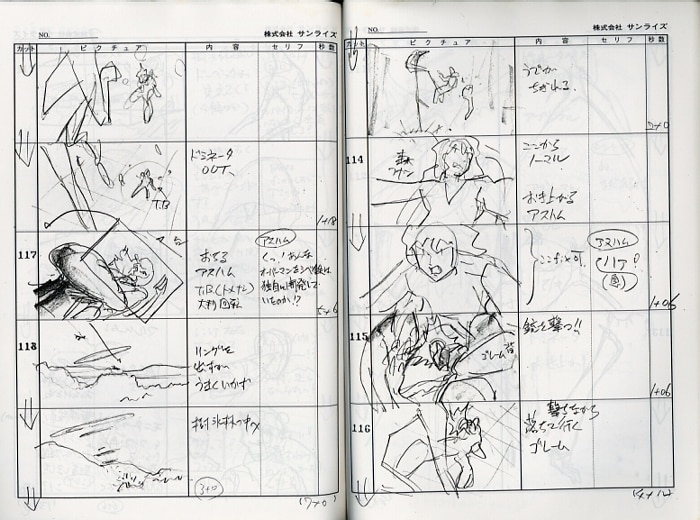 NO.
株式会社 サンライズ
カット
ピクチュア
内容
セリフ
秒数
ドミネータ
OUT、
T.B
1+18
117
おちる
アスハム
T.B(トメナシ)
アスハム
くっ!あんな
オーバーマンをシベ鉄は
独自に開発して
いたのか!?
5+6
118
リングを
出すが
うまくいかず
樹氷林の中へ
3+0
(7+0)
NO.
株式会社 サンライズ
カット
ピクチュア
内容
セリフ
秒数
うでが
ちぎれる。
7+0
114
ここから
ノーマル
おき上がる
アストム
アスハム
1+06
115
ゴレーム
銃を撃つ!!
1+06
116
撃ちながら
落ちて行く
ゴレーム